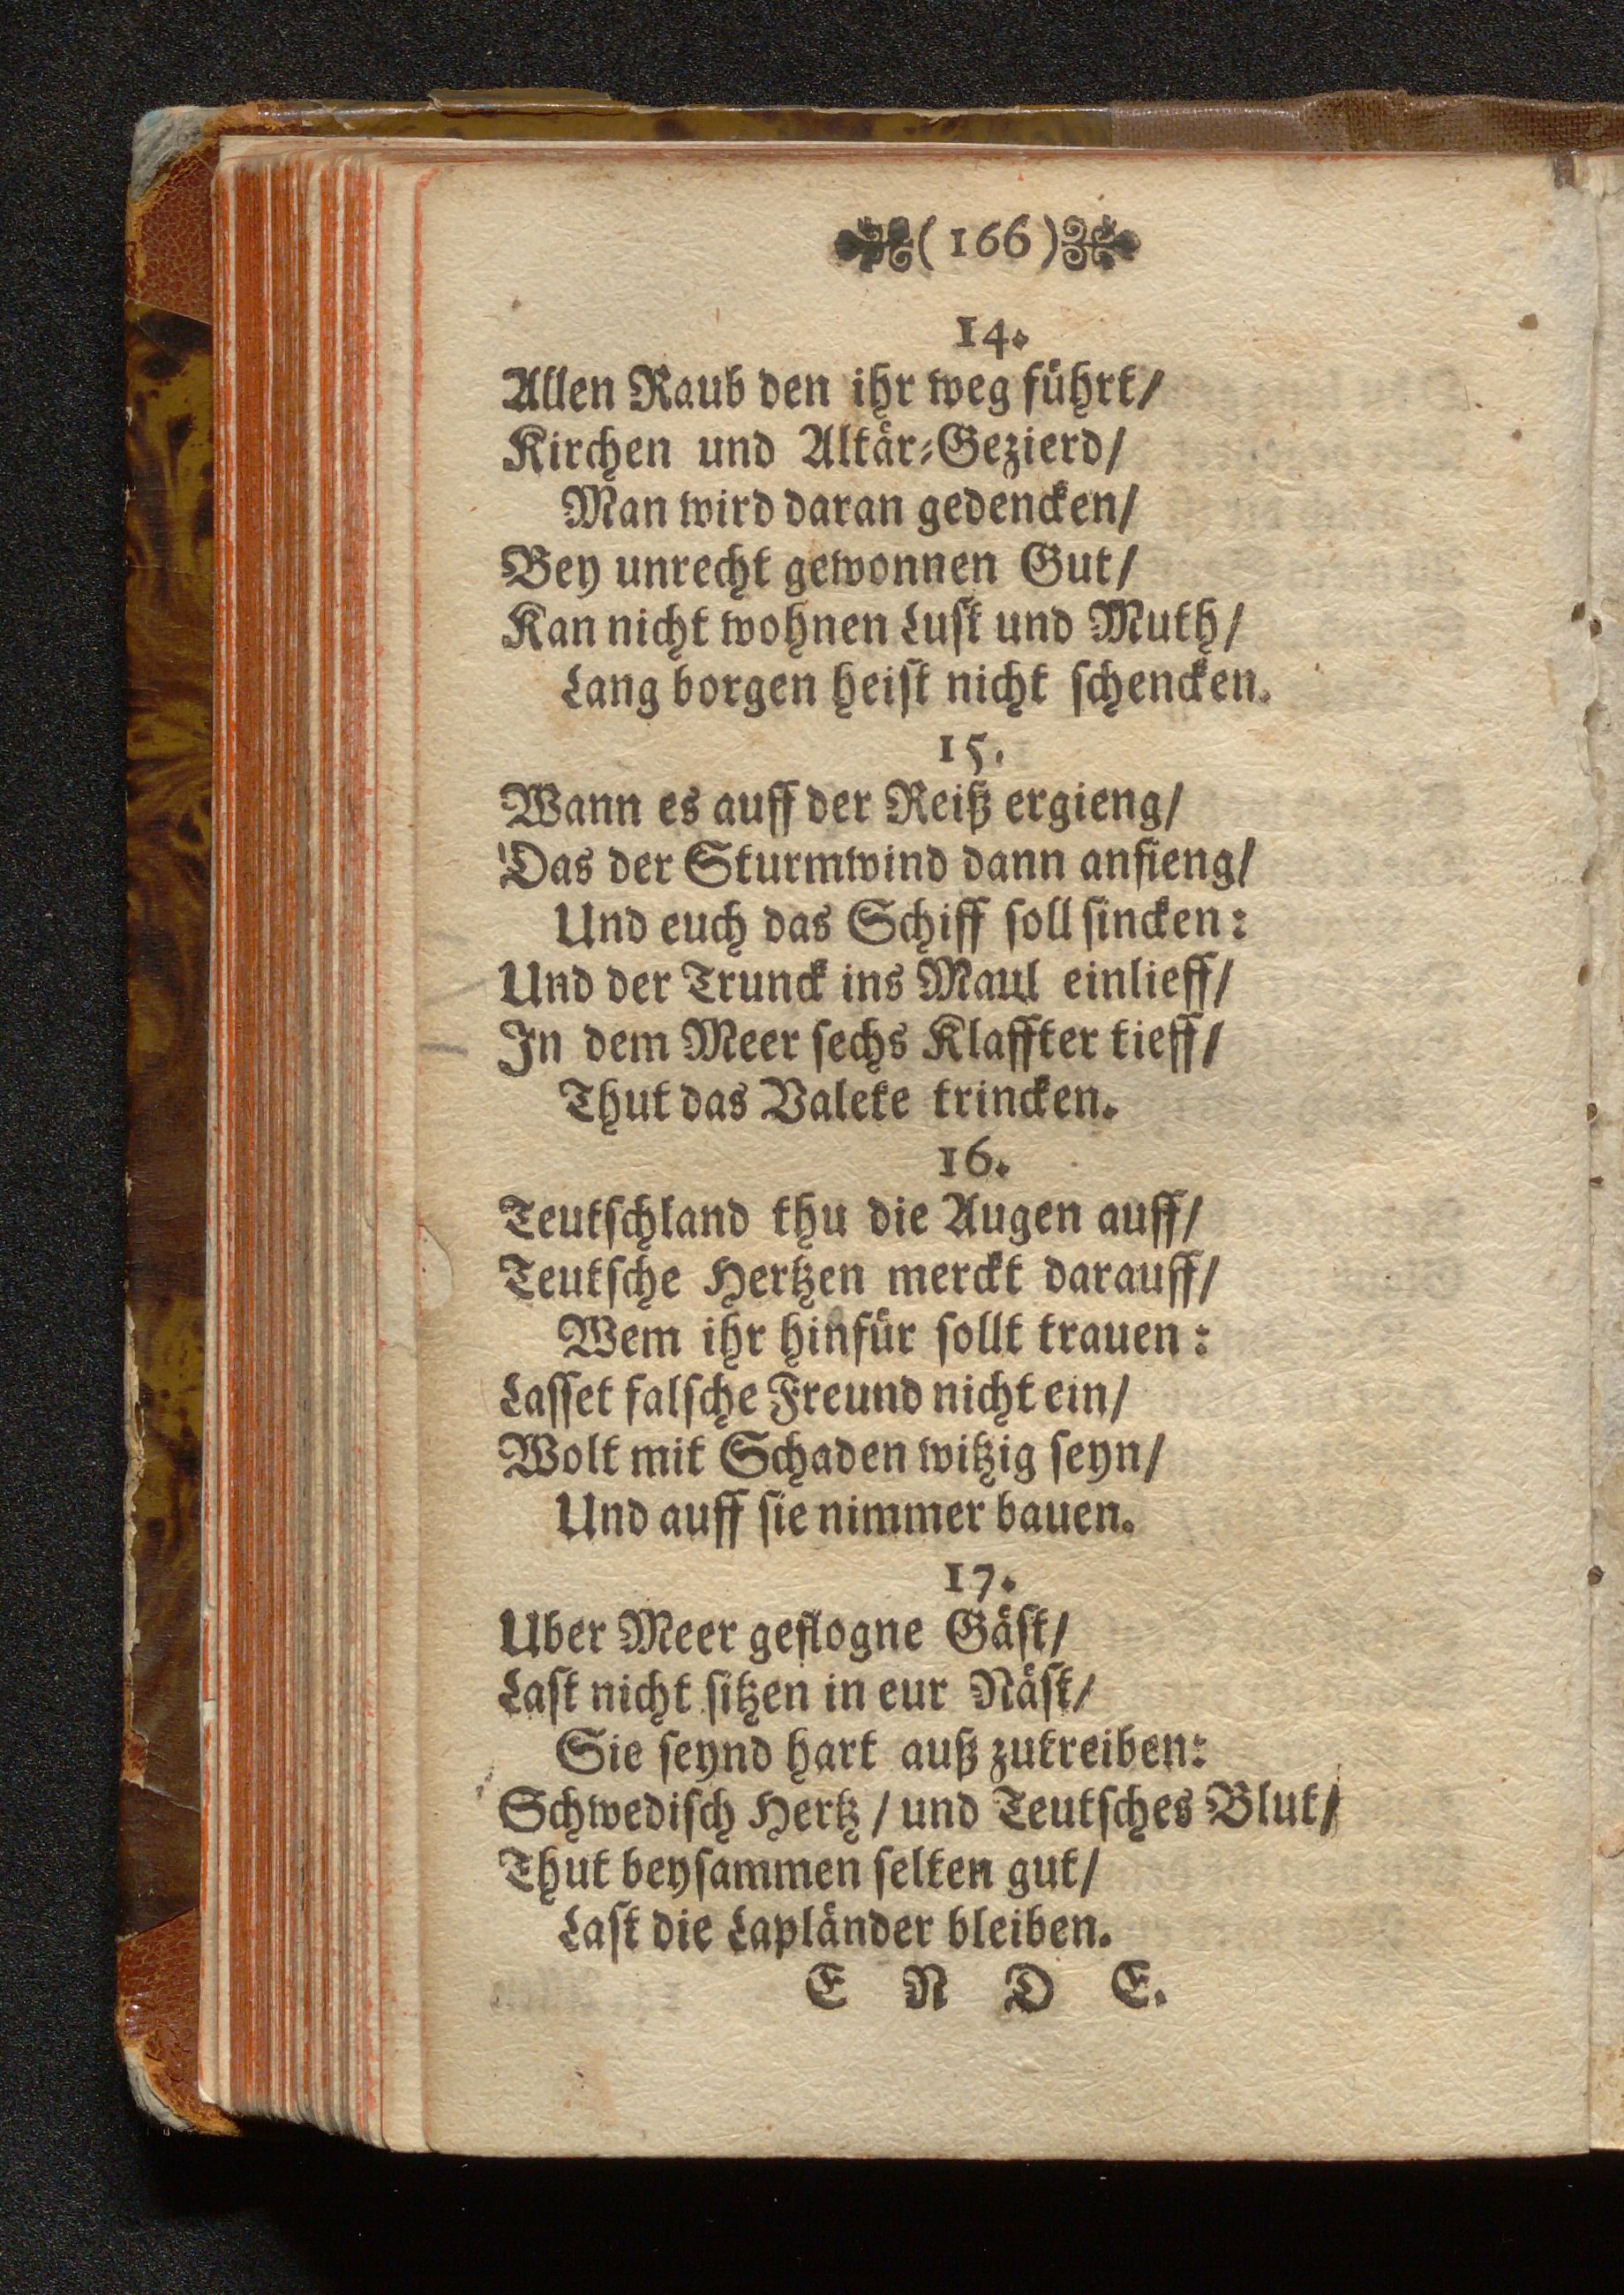 (166)
14.
Allen Raub den ihr weg führt/
Kirchen und Altär-Gezierd/
Man wird daran gedencken/
Bey unrecht gewonnen Gut/
Kan nicht wohnen Lust und Muth/
Lang borgen heist nicht schencken.
15.
Wann es auff der Reiß ergieng/
Das der Sturmwind dann anfieng/
Und euch das Schiff soll sincken:
Und der Trunck ins Maul einlieff/
In dem Meer sechs Klaffter tieff/
Thut das Valete trincken.
16.
Teutschland thu die Augen auff/
Teutsche Hertzen merckt darauff/
Wem ihr hinfür sollt trauen:
Lasset falsche Freund nicht ein/
Wolt mit Schaden witzig seyn/
Und auff sie nimmer bauen.
17.
Uber Meer geflogne Gäst/
Last nicht sitzen in eur Näst/
Sie seynd hart auß zutreiben:
Schwedisch Hertz / und Teutsches Blut/
Thut beysammen selten gut/
Last die Lapländer bleiben.
E N D E.